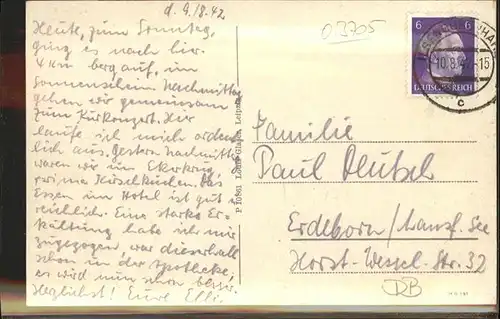 d. 9./8.42.
Heute, zum Sonntag,
ging es nach hier.
4 km bergauf, im
Sonnenschein. Nachmittag
gehen wir gemeinsam
zum Kurkonzert. Hier
laufe ich mich ordent
lich aus. Gestern Nachmitt.
waren wir im
prima Kirschkuchen. Das
Essen im Hotel ist gut &
reichlich. Eine starke Er-
kältung habe ich mir
zugezogen, war dieserhalb
schon in der Apotheke,
es wird nun schon besser.
Herzlichst! Eure Elli.
P 10861
03705
6 6
DEUTSCHES REICH
10.8.42.-15
c
Familie
Paul Deubel
Erdeborn/Mansf. See
Horst-Wessel-Str. 32
RB